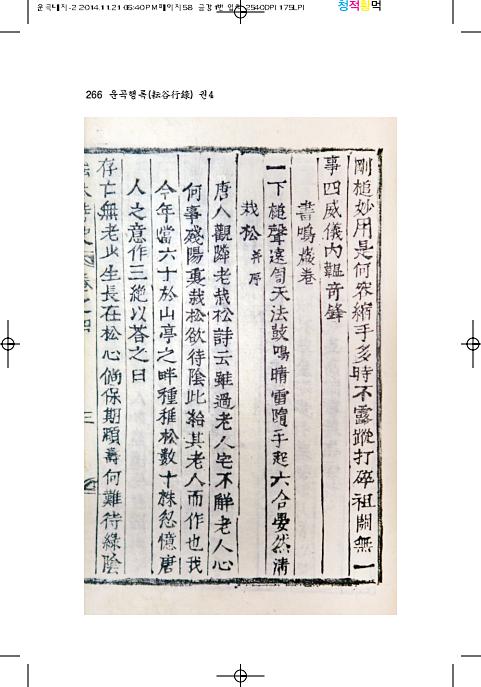 운곡대지-2 2014.11.21 05:40 PM 페이지58
2540DPI 175LPI
청적황먹
266 운곡행록(耘谷行錄) 권4
剛槌妙用是何容縮手多時不露蹤打碎祖關無一
事四威儀內韞奇鋒
書鳴巖卷
一下槌聲遠匝天法鼓鳴晴雷隨手起六合晏然淸
栽松 幷序
唐人觀隣老栽松詩云雖過老人宅不解老人心
何事殘陽裏栽松欲待陰此給其老人而作也我
今年當六十於山亭之畔種稚松數十株忽憶唐
人之意作三絶以答之曰
存亡無老少生長在松心倘保期頤壽何難待綠陰
三